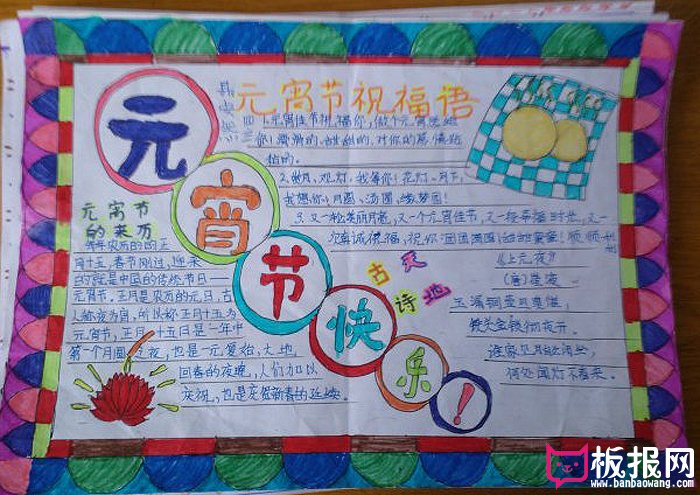 元宵节祝福语
元宵节快乐!
1.元宵佳节祝福你,做个元宵送给
你!滑滑的,甜甜的,对你的感情粘
粘的。
2.赏月、观灯,我等你!花灯、月下,
我想你!月圆、汤圆、缘梦圆!
3.又一轮美丽月亮,又一个元宵佳节,又一段幸福时光,又一
诚很福,祝你团团圆圆!甜甜蜜蜜!顺顺
元宵节
的来历
每年农历的正月
月十五,春节刚过,迎来
的就是中国的传统节日一
元宵节。正月是农历的元月,古
人称夜为宵,所以称正月十五为
元宵节。正月十五日是一年中
第一个月圆之夜,也是一元复始,大地
回春的夜晚,人们加以
庆祝,也是庆贺新春的延续。
古灵
诗地
《上元夜》
(唐)崔液
玉漏铜壶且莫催,
铁关金锁彻夜开。
谁家见月能闲坐,
何处闻灯不看来。
板报网
www.banbaowang.com